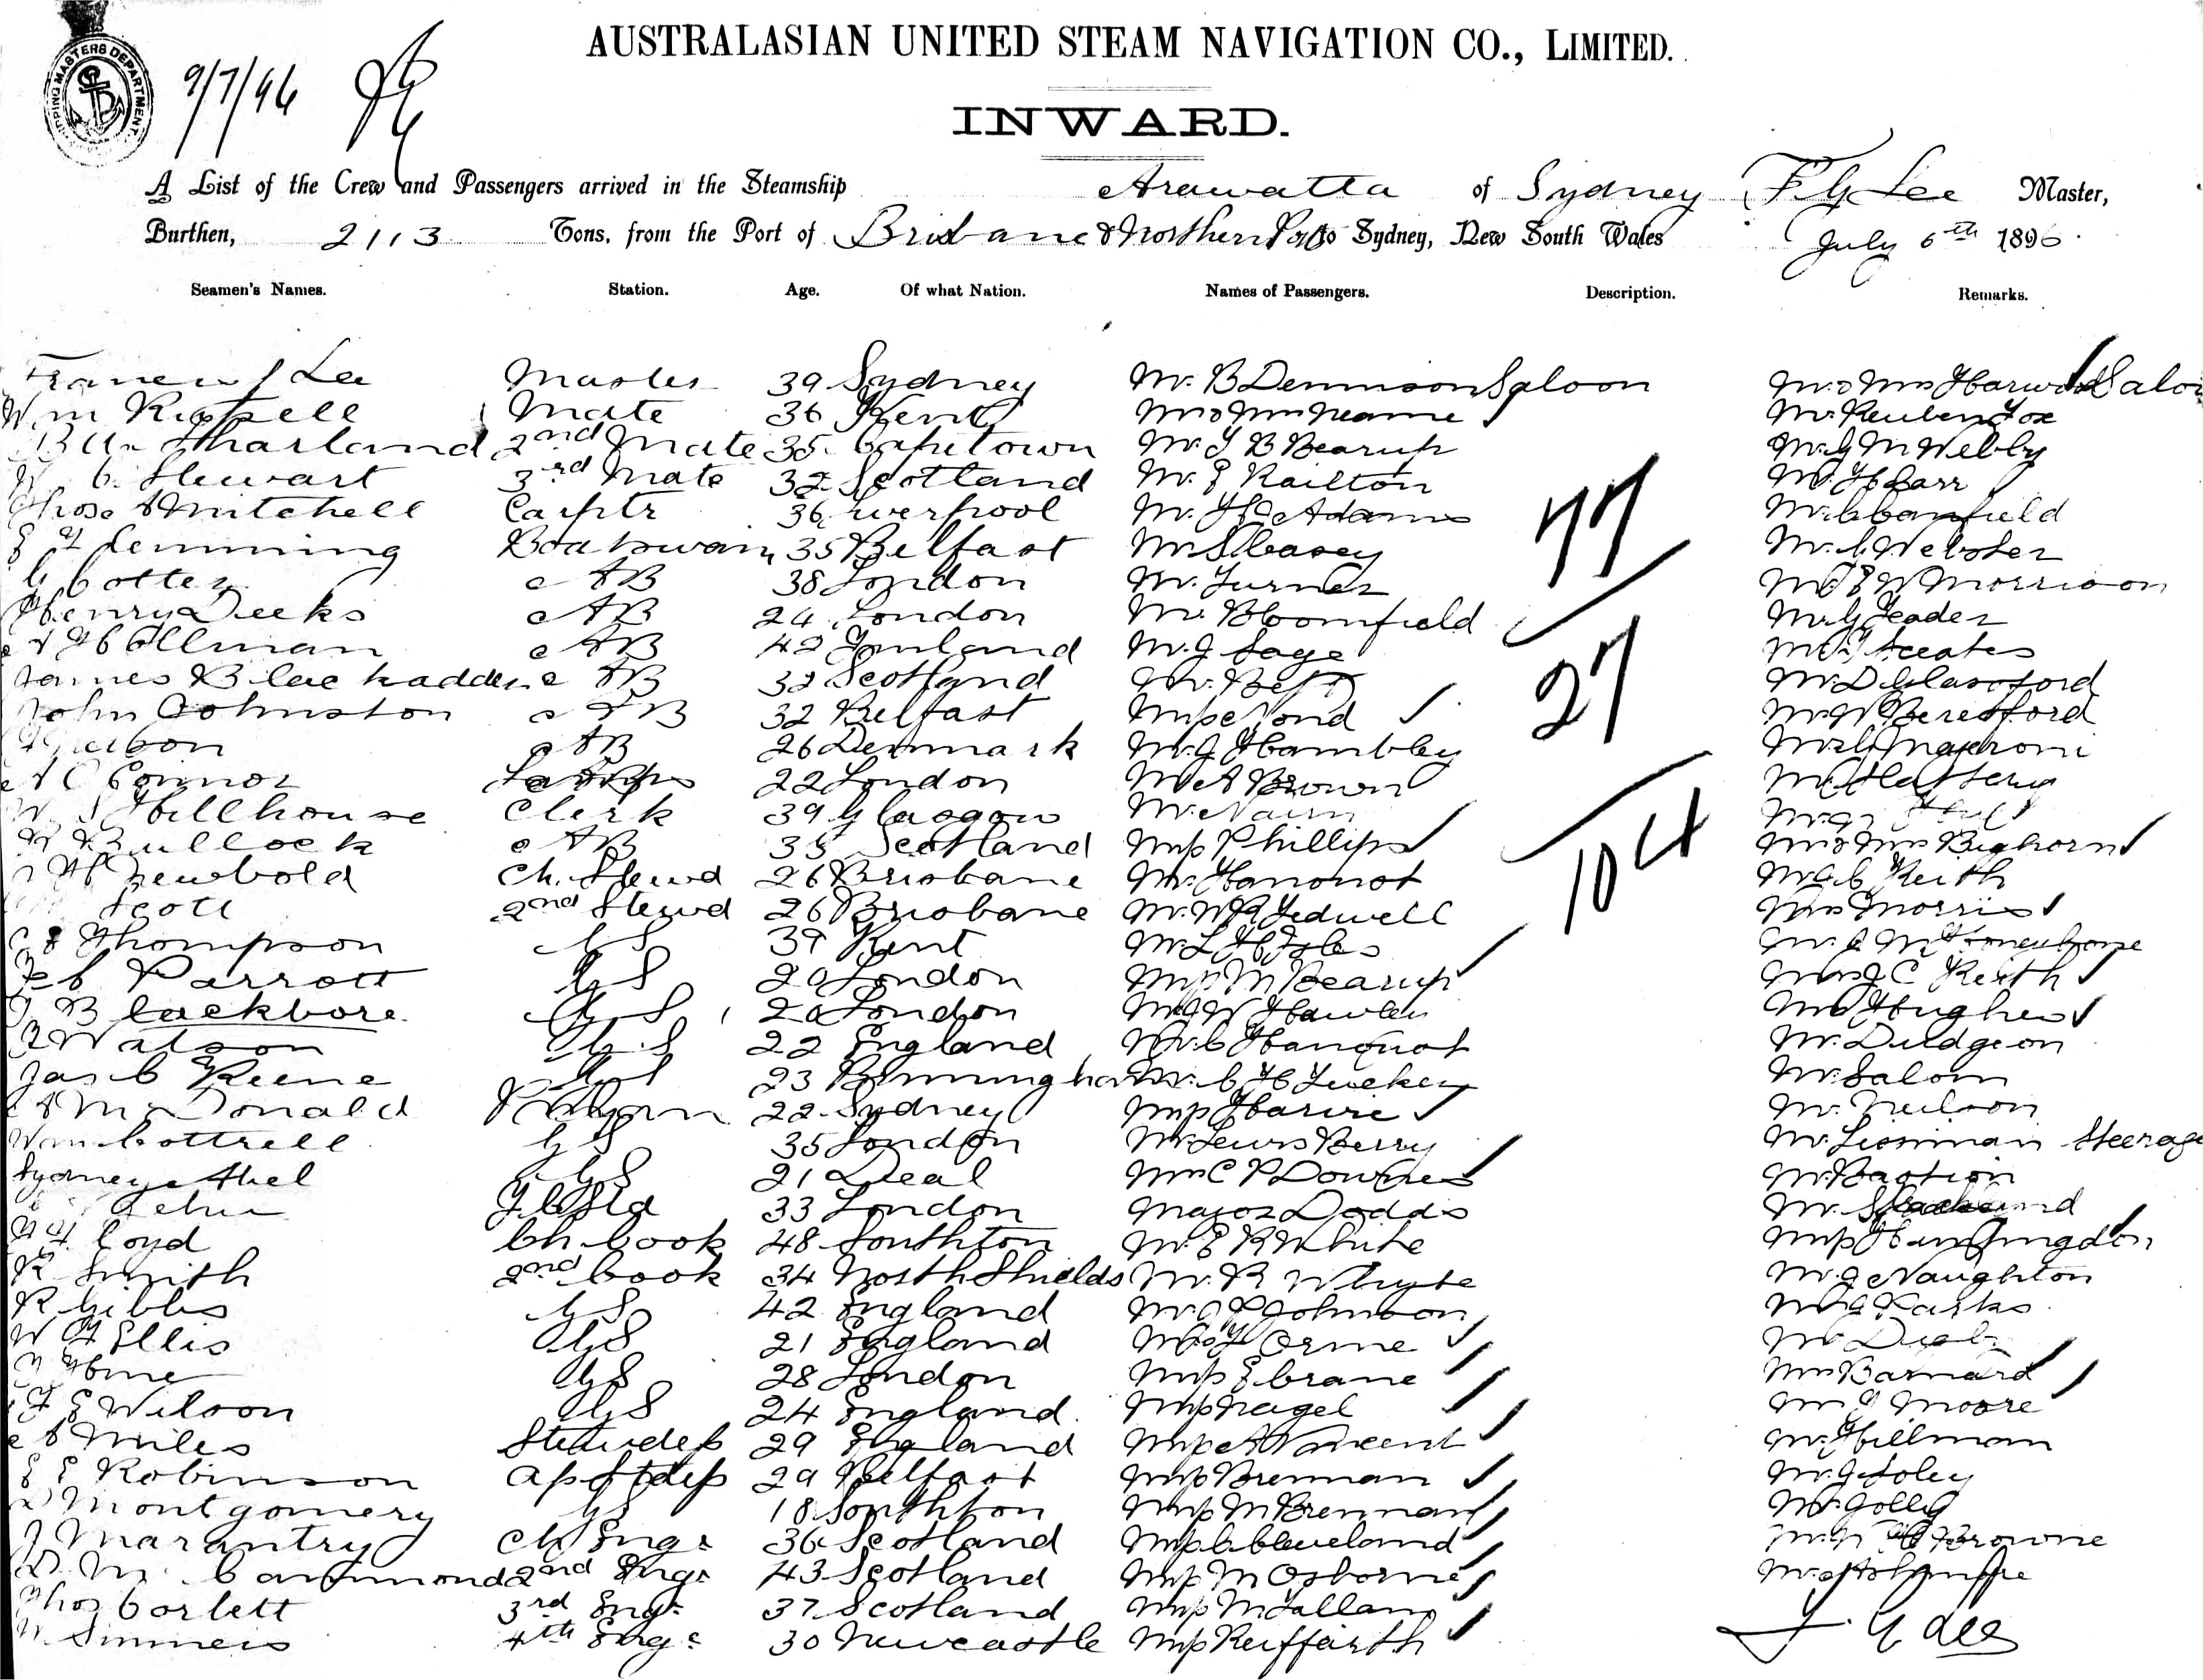 SHIPPING MASTERS DEPARTMENT
9/7/96
AUSTRALASIAN UNITED STEAM NAVIGATION CO., LIMITED.
INWARD.
A List of the Crew and Passengers arrived in the Steamship Arawatta of Sydney F G Lee Master,
Burthen, 2113 Tons, from the Port of Brisbane & Northern Ports to Sydney, New South Wales July 6th 1896
Seamen's Names. Station. Age. Of what Nation. Names of Passengers. Description. Remarks.
Lee Master 39 Sydney Mr. B Dennison Saloon Mr & Mrs Harwood Saloon
Wm Mate 36 Kent Mr & Mrs Neame Mr. Reuben Fox
Sharland 2nd Mate 35 Capetown Mr. B Bearup Mr. G M Webby
C. Stewart 3rd Mate 32 Scotland Mr. E Railton Mr. H Carr
Thos A Mitchell Carptr 36 Liverpool Mr. Adams Mr. C Canfield
E Flemming Boatswain 35 Belfast Mr S Casey Mr. C Webster
G Cotter AB 38 London Mr. Turner Mr. E W Morrison
Henry Deeks AB 24 London Mr. Bloomfield Mr G Feader
A H Ollman AB 42 Finland Mr. J Sage
James Blackadder AB 32 Scotland Mr. Best Mr. D Glassford
John Johnston AB 32 Belfast Miss Nond Mr. W Beresford
AB 26 Denmark Mr. J Hambley
A O'Connor Lamps 22 London Mr A Brown Mr Slattery
W S Hillhouse Clerk 39 Glasgow Mr. Nairn
Bullock AB 35 Scotland Miss Phillips Mr & Mrs Bighorn
H Newbold Ch. Stewd 26 Brisbane Mr. Hanonot Mr A C Keith
Scott 2nd Stewd 26 Brisbane Mr. W R Tedwell Mrs Morris
Thompson GS 37 Kent Mr. L H Isles
Parrott GS 20 London Miss M Bearup Mrs J C Keith
Blackbore GS 20 London Mr J W Hawley Mrs Hughes
Watson GS 22 England Mr. C Hanquot Mr. Dudgeon
Jas C Keene GS 23 Birmingham Mr. C H Tuckey Mr. Salom
A McDonald 22 Sydney Miss Harvie Mr. Neilson
Wm Cottrell GS 35 London Mr Lewis Berry Mr. Lissiman Steerage
Sydney Abel GS 21 Deal Mrs C P Downes Mr. Bastion
33 London Major Dodds Mr.
Loyd Ch. Cook 48 Southton Mr. E R White Miss Huntingdon
R Smith 2nd Cook 34 North Shields Mr. R Whyte Mr. J Naughton
R Gibbs GS 42 England Mr. Johnson Mr. J Parks
W H Ellis GS 21 England Mrs Orme Mr
Hone GS 28 London Miss E Crane Mrs Barnard
E Wilson GS 24 England Miss Nagel Moore
A Miles Stewdess 29 England Miss A Vincent Mr. Hillman
E E Robinson Asst Stdss 29 Belfast Miss Brennan Mr. J Foley
Montgomery GS 18 Southton Miss M Brennan Mr. Jolly
J Marantry Ch Engr 36 Scotland Miss C Cleveland Mr. Browne
D. Mc Cammond 2nd Engr 43 Scotland Miss M Osborne
Thos Corlett 3rd Engr 37 Scotland Miss McCallam
Simmers 4th Engr 30 Newcastle Miss Reiffarth
77
27
104
F. G Lee